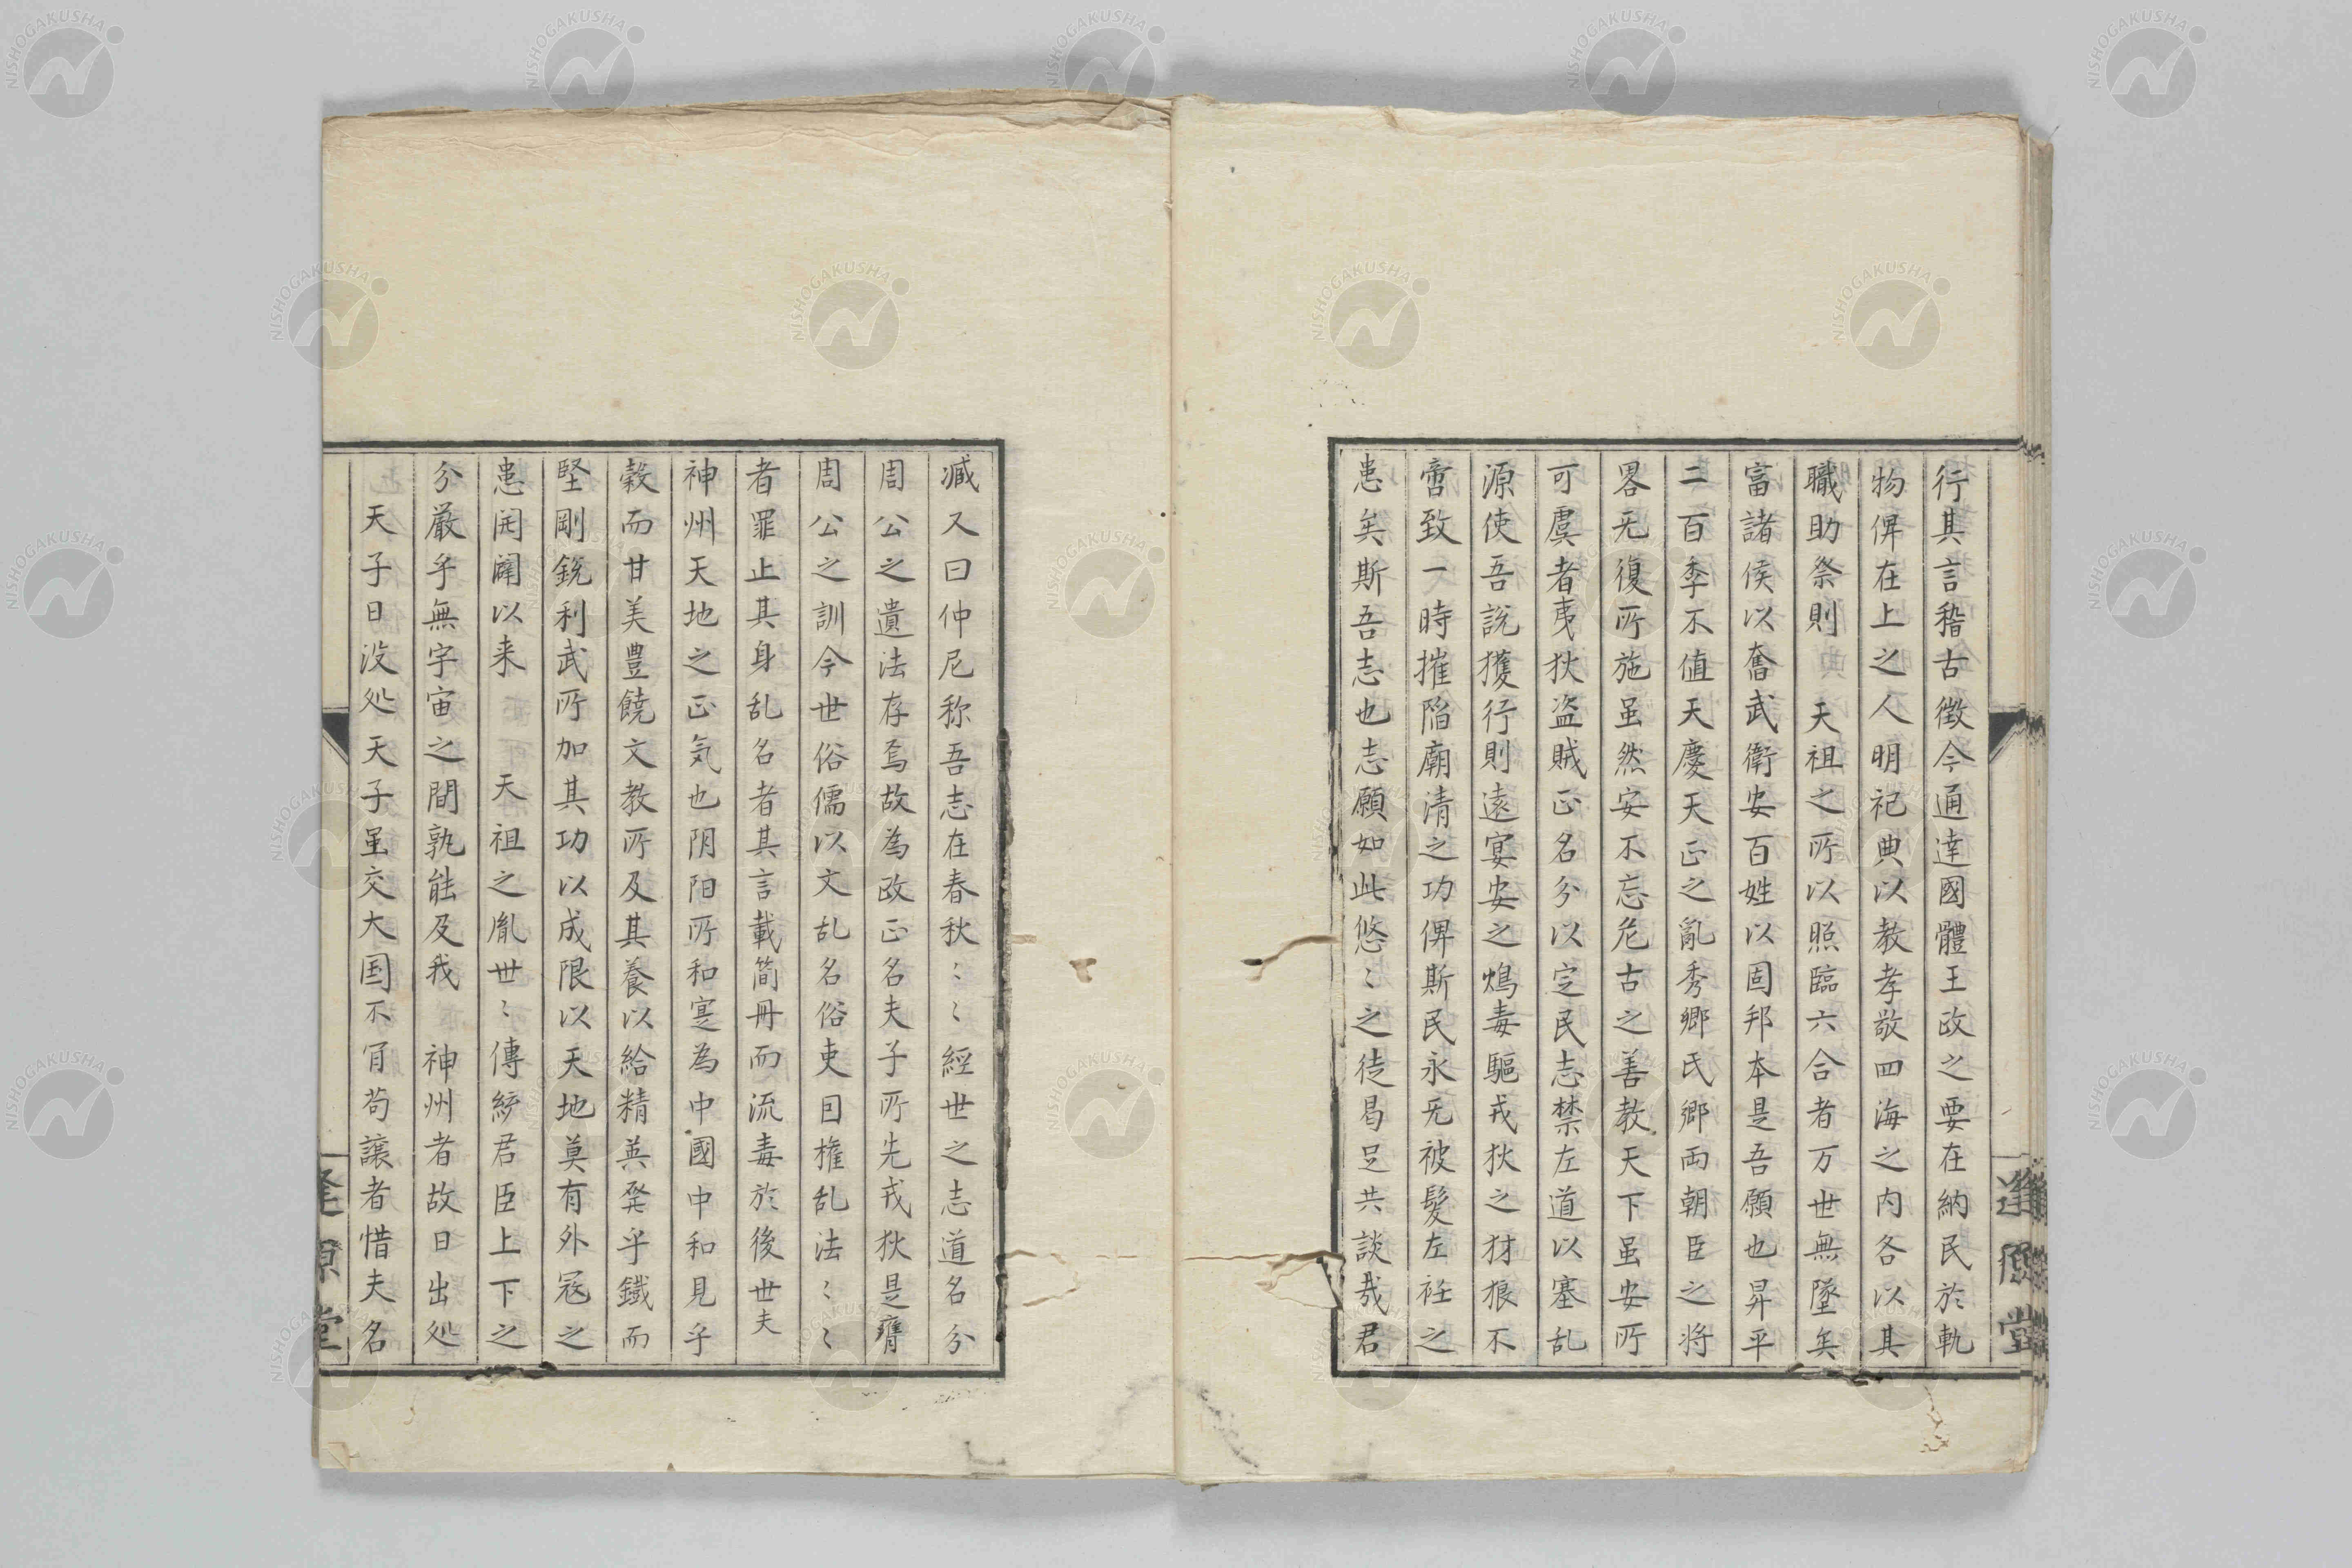 行其言稽古徴今通達國體王政之要在納民於軌
物俾在上之人明祀典以教孝敬四海之内各以其
職助祭則　天祖之所以照臨六合者万世無墜矣
富諸侯以奮武衛安百姓以固邦本是吾願也昇平
二百季不値天慶天正之亂秀郷氏郷両朝臣之将
畧无復所施虽然安不忘危古之善教天下虽安所
可虞者夷狄盗賊正名分以定民志禁左道以塞乱
源使吾説獲行則遠宴安之鴆毒驅戎狄之豺狼不
啻致一時摧陥廟清之功俾斯民永无被髮左衽之
患矣斯吾志也志願如此悠〻之徒曷足共談哉君
臧又曰仲尼称吾志在春秋〻〻經世之志道名分
周公之遺法存焉故為政正名夫子所先戎狄是膺
周公之訓今世俗儒以文乱名俗吏因権乱法〻〻
者罪止其身乱名者其言載简冊而流毒於後世夫
神州天地之正気也阴阳所和寔為中國中和見乎
穀而甘美豊饒文教所及其養以給精英発乎鐵而
堅剛銳利武所加其功以成限以天地莫有外寇之
患開闢以来　天祖之胤世〻傳統君臣上下之
分嚴乎無宇宙之間孰能及我　神州者故日出処
天子日没処天子虽交大国不肯苟譲者惜夫名
逢原堂
逢原堂
NISHOGAKUSHA